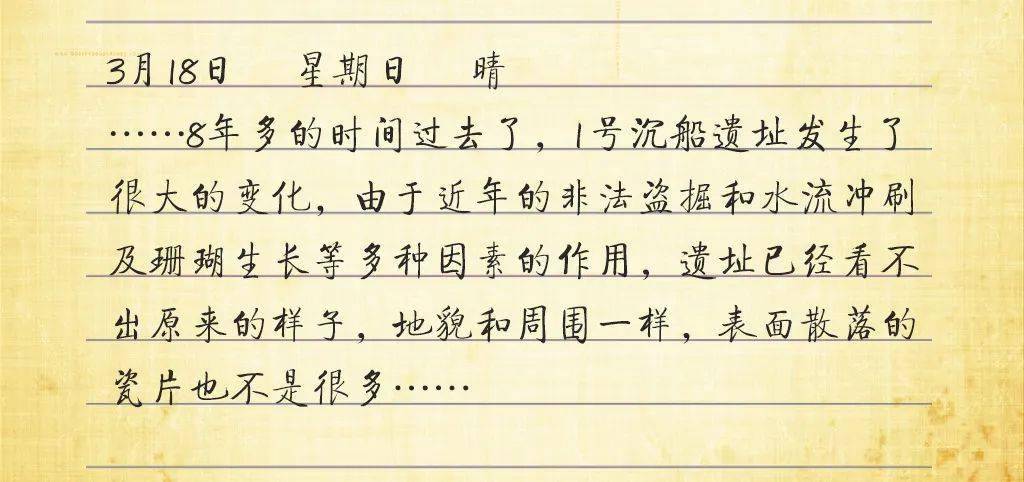 3月18日 星期日 晴
……8年多的时间过去了，1号沉船遗址发生了
很大的变化，由于近年的非法盗掘和水流冲刷
及珊瑚生长等多种因素的作用，遗址已经看不
出原来的样子，地貌和周围一样，表面散落的
瓷片也不是很多……